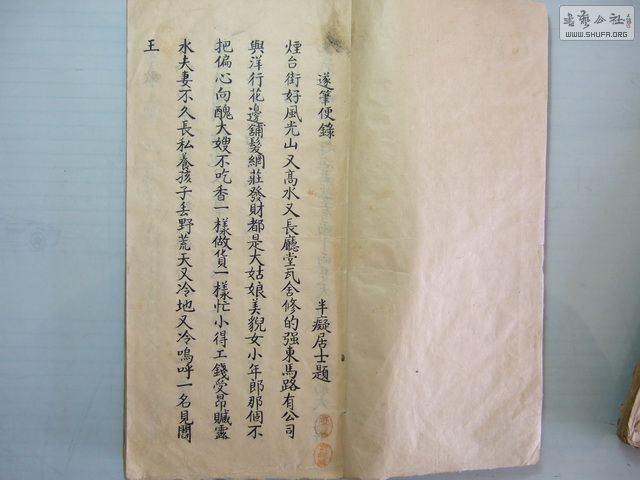 遂筆便錄 半癡居士題
煙台街好風光山又高水又長廳堂瓦舍修的强東馬路有公司
與洋行花邊舖髮網莊發財都是大姑娘美貌女小年郎那個不
把偏心向醜大嫂不吃香一樣做貨一樣忙小得工錢受昂贓露
水夫妻不久長私養孩子丢野荒天又冷地又冷嗚呼一名見閻
王
書藝公社
WWW.SHUFA.ORG